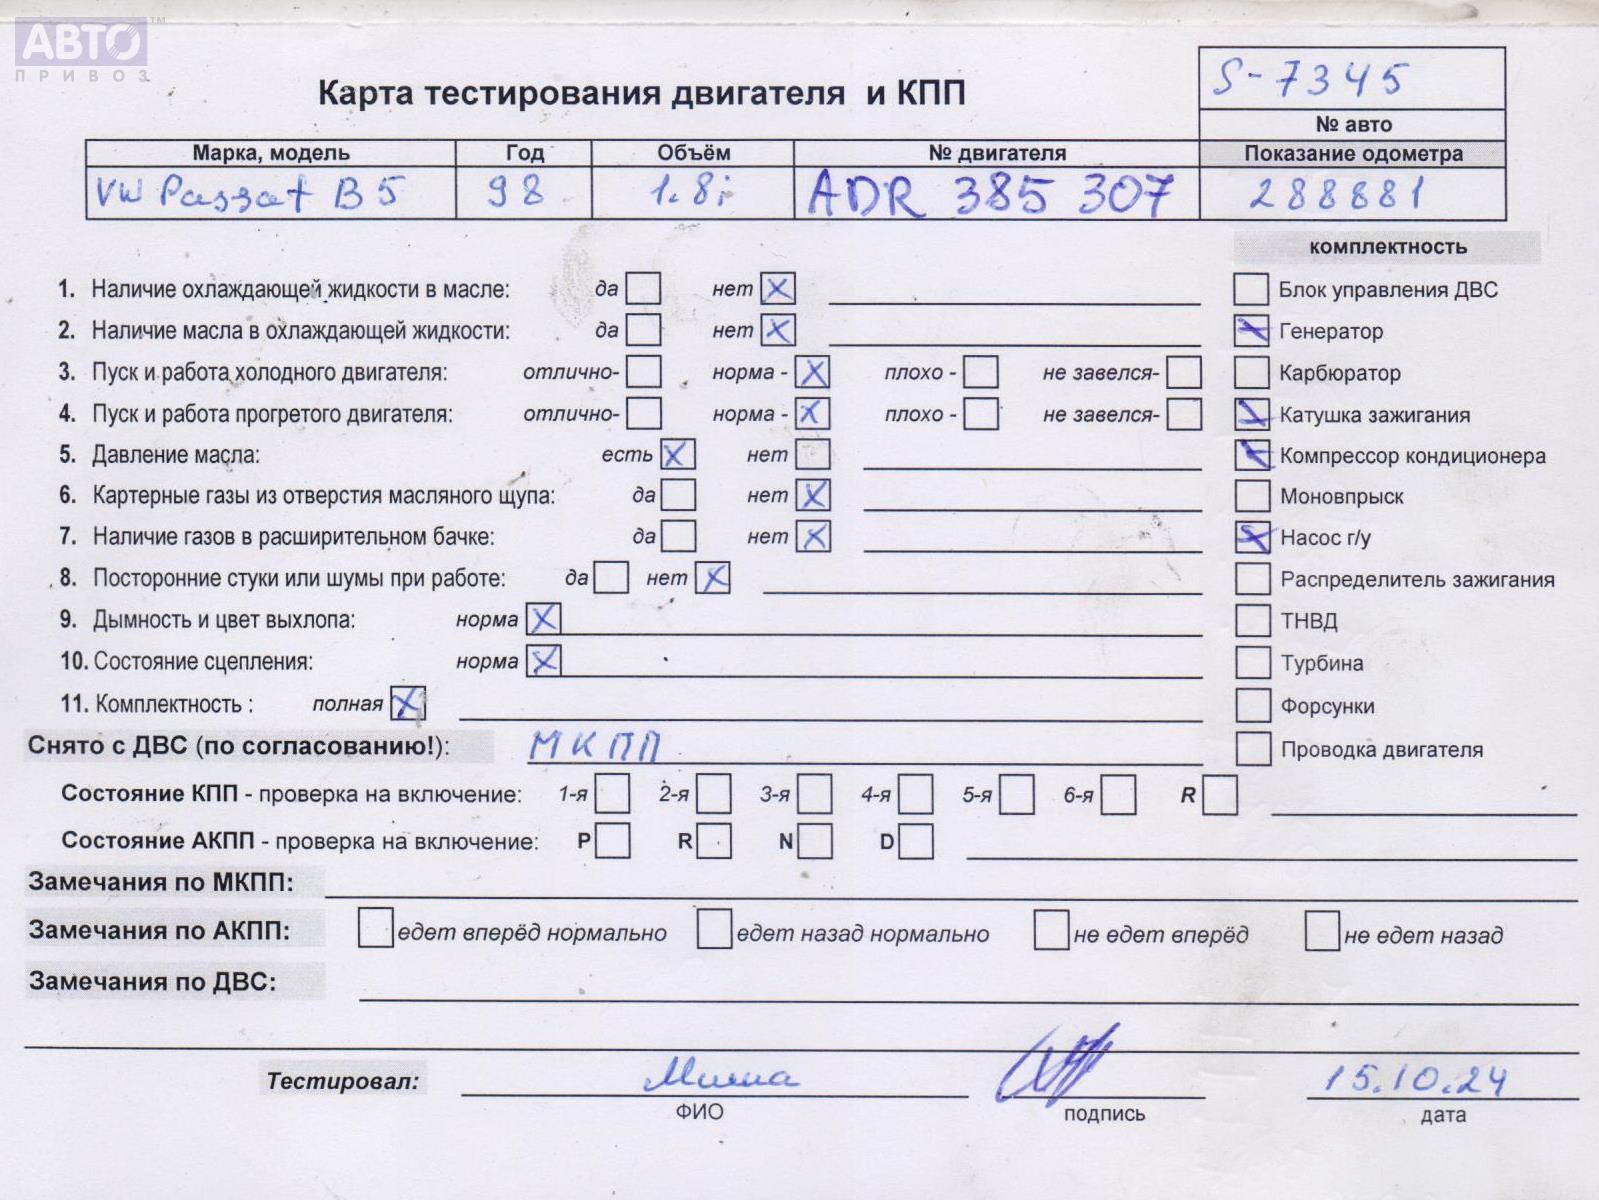 АВТО ™
ПРИВОЗ
S-7345
Карта тестирования двигателя и КПП
№ авто
Марка, модель Год Объём № двигателя Показание одометра
VW Passat B5 98 1.8i ADR 385 307 288881
комплектность
1. Наличие охлаждающей жидкости в масле: да нет X Блок управления ДВС
2. Наличие масла в охлаждающей жидкости: да нет X X Генератор
3. Пуск и работа холодного двигателя: отлично- норма - X плохо - не завелся- Карбюратор
4. Пуск и работа прогретого двигателя: отлично- норма - X плохо - не завелся- X Катушка зажигания
5. Давление масла: есть X нет X Компрессор кондиционера
6. Картерные газы из отверстия масляного щупа: да нет X Моновпрыск
7. Наличие газов в расширительном бачке: да нет X X Насос г/у
8. Посторонние стуки или шумы при работе: да нет X Распределитель зажигания
9. Дымность и цвет выхлопа: норма X ТНВД
10. Состояние сцепления: норма X Турбина
11. Комплектность : полная X Форсунки
Снято с ДВС (по согласованию!): МКПП Проводка двигателя
Состояние КПП - проверка на включение: 1-я 2-я 3-я 4-я 5-я 6-я R
Состояние АКПП - проверка на включение: P R N D
Замечания по МКПП:
Замечания по АКПП: едет вперёд нормально едет назад нормально не едет вперёд не едет назад
Замечания по ДВС:
Тестировал: Миша 15.10.24
ФИО подпись дата